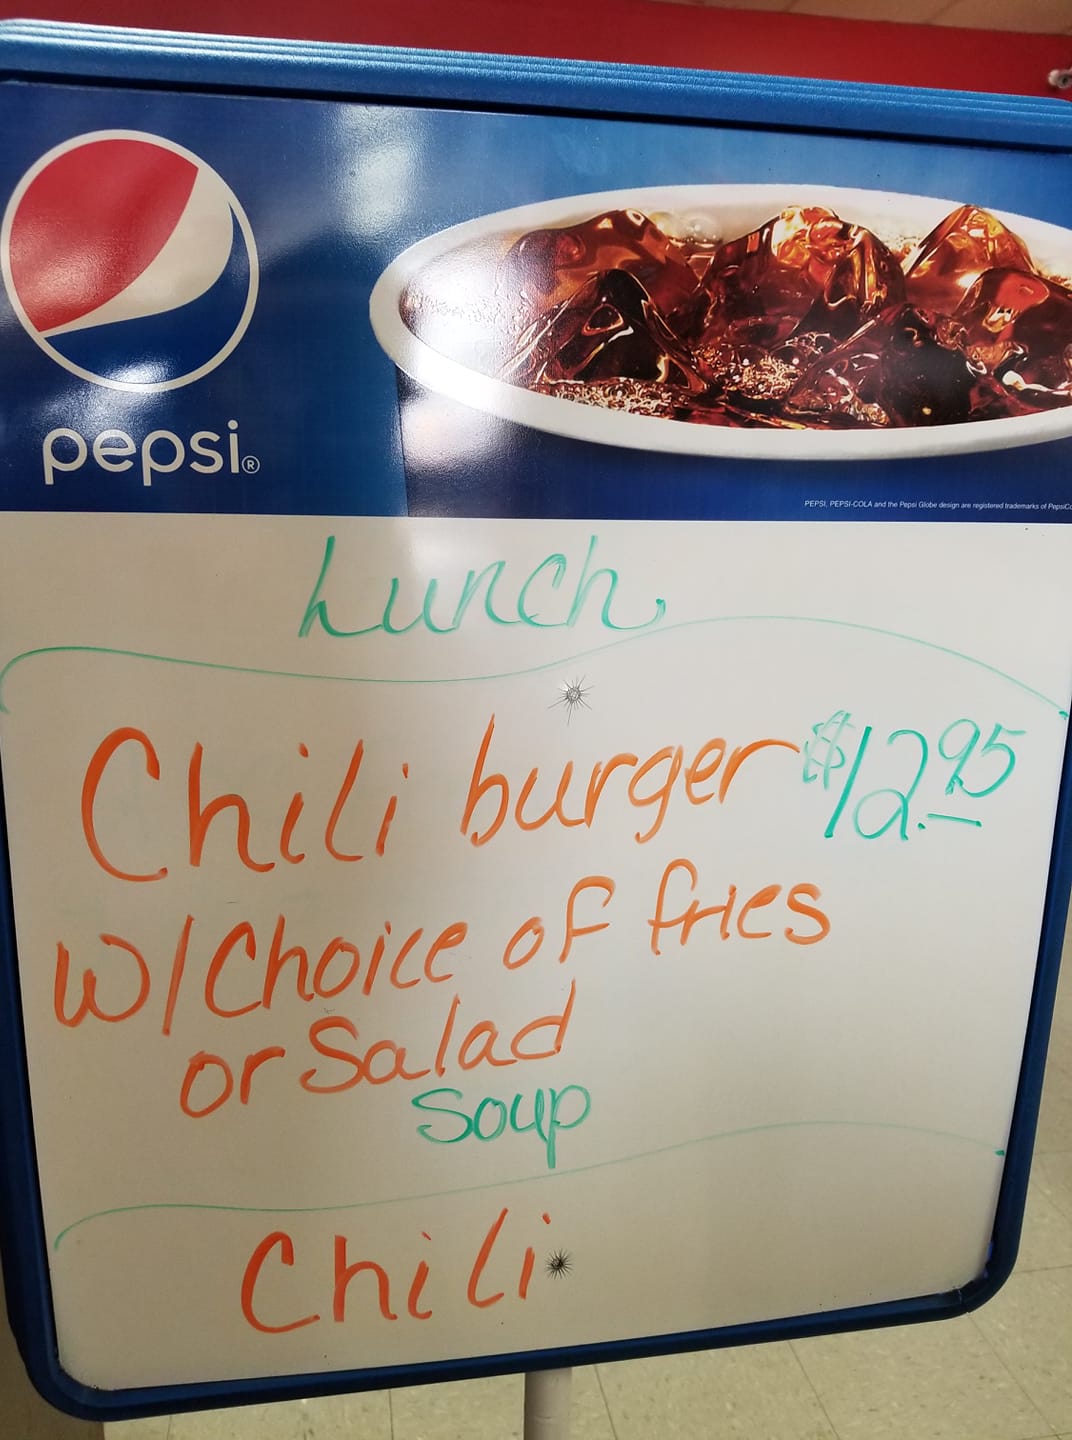 pepsi®
PEPSI, PEPSI-COLA and the Pepsi Globe design are registered trademarks of PepsiCo
Lunch
Chili burger $12.95
W/Choice of fries
or Salad
Soup
Chili